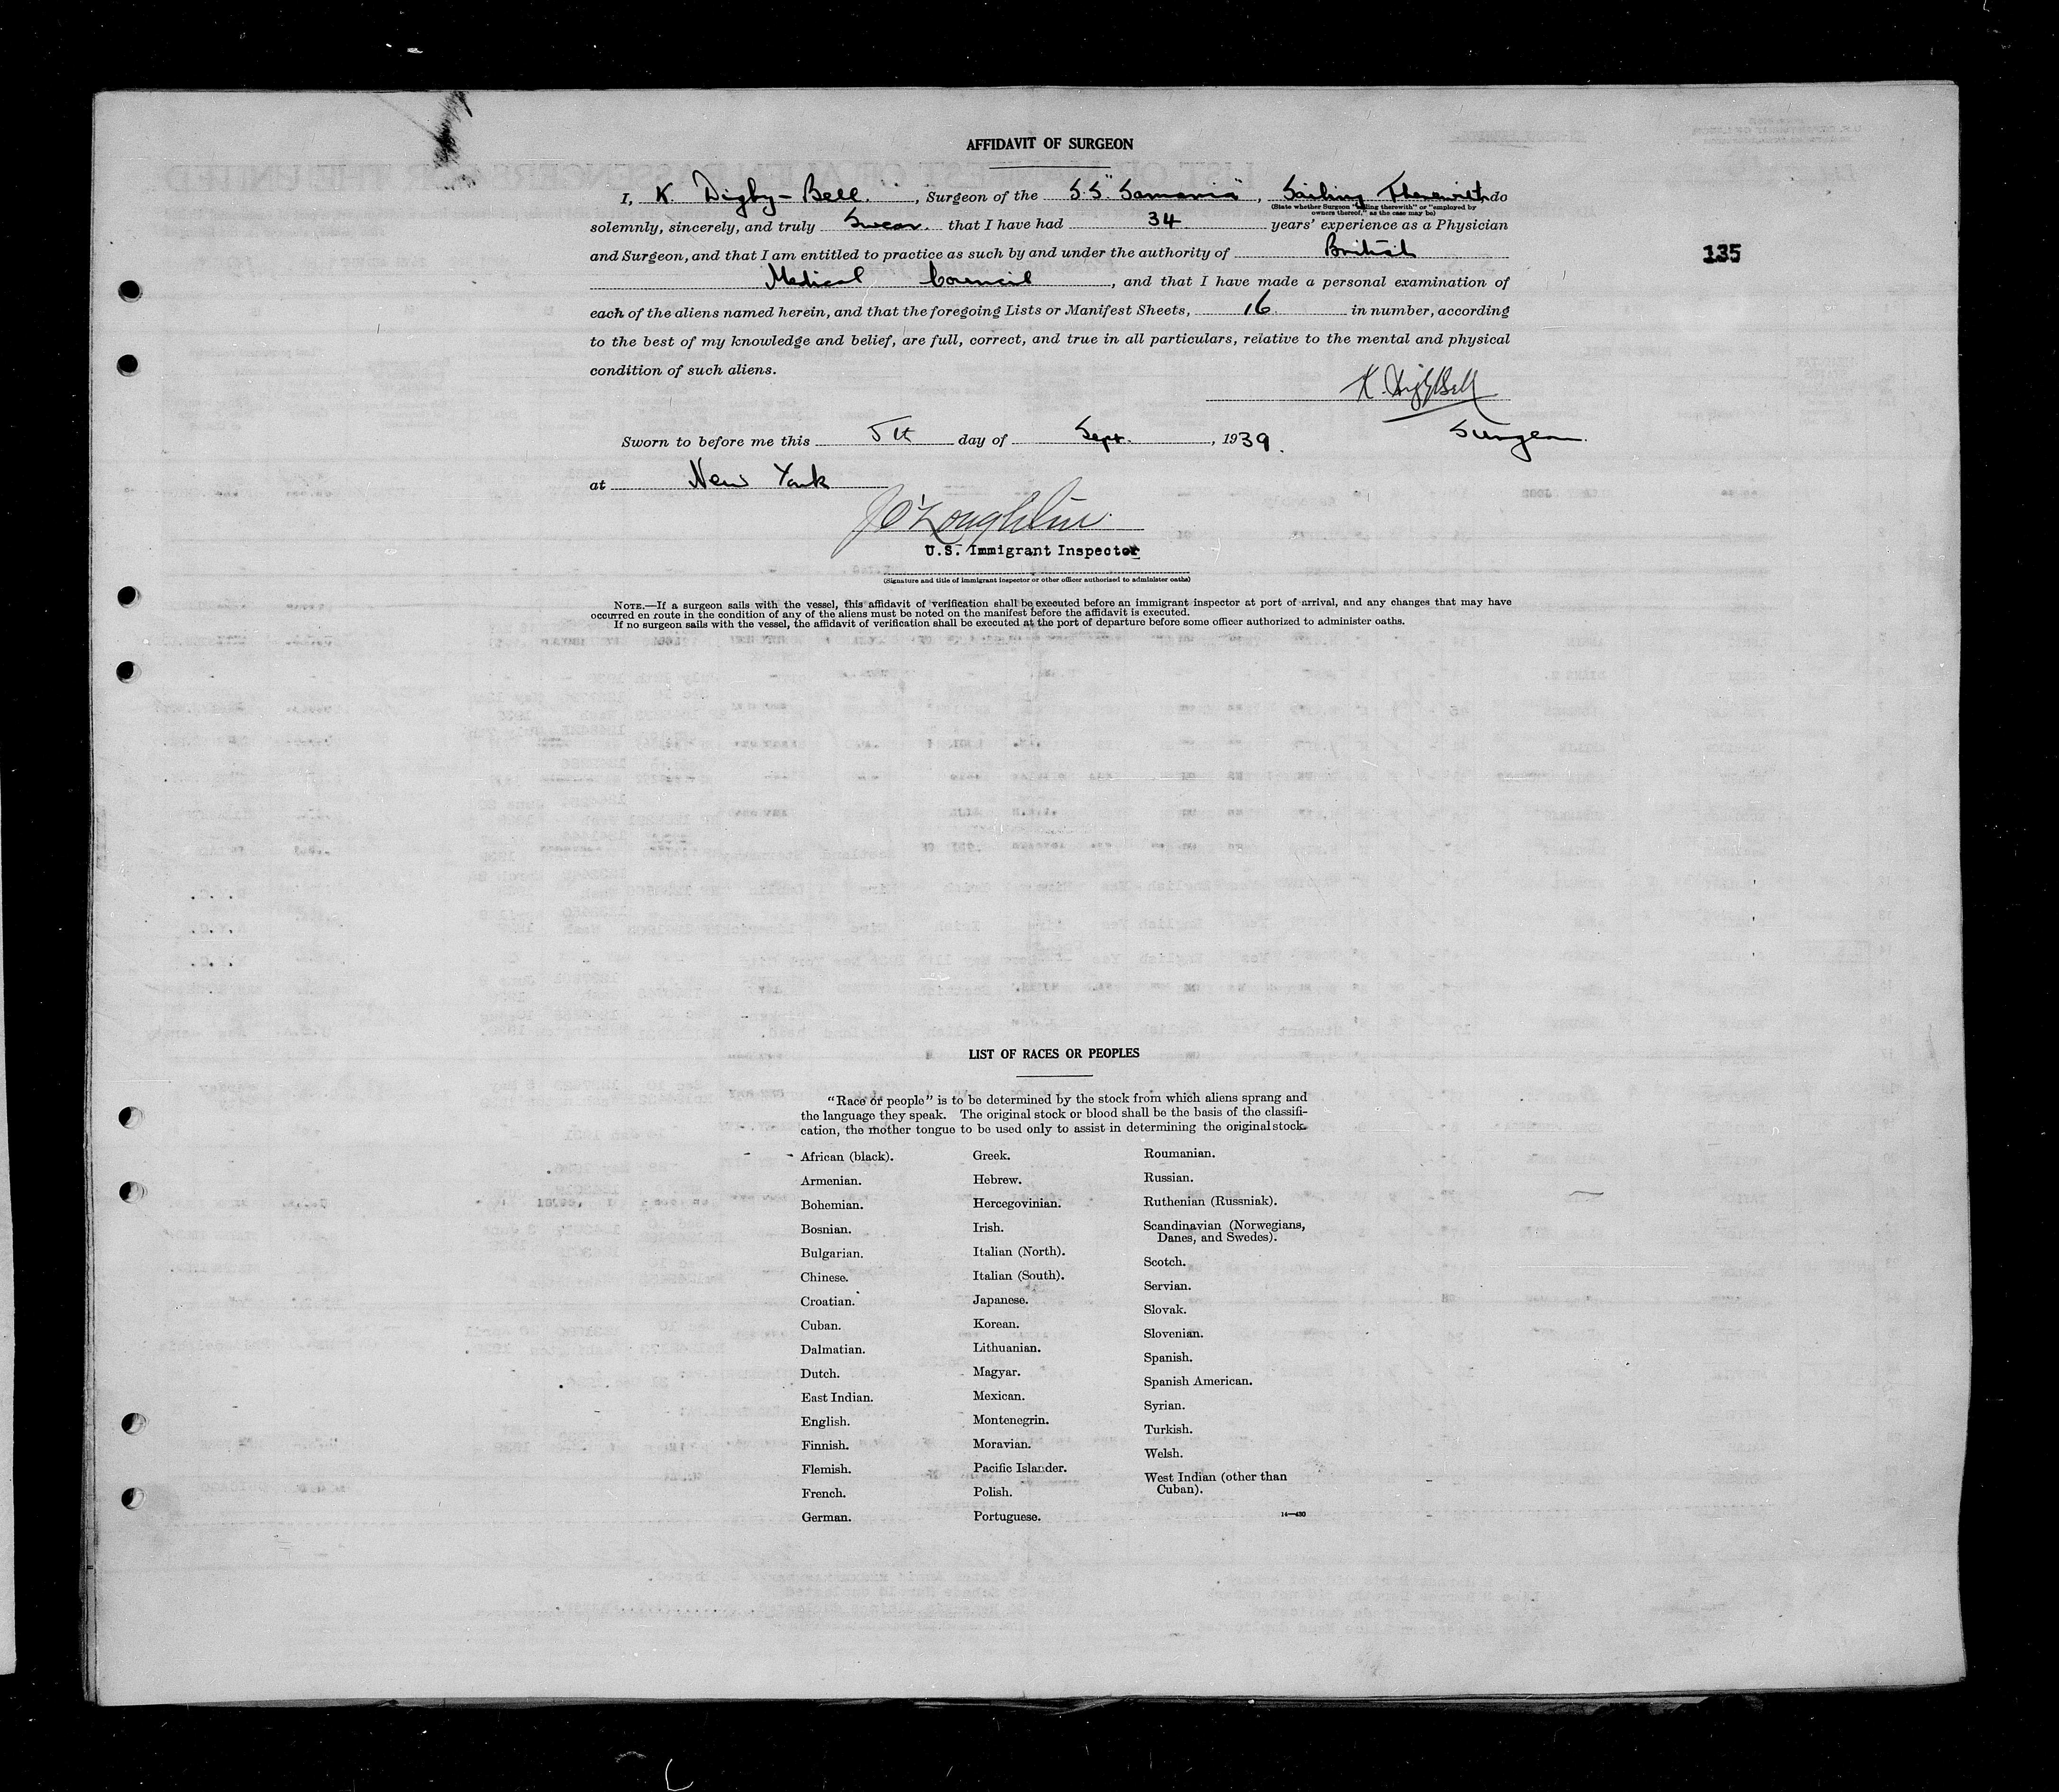 AFFIDAVIT OF SURGEON
I, K. Digby-Bell. , Surgeon of the S.S. "Samaria" , Sailing Therewith, do
(State whether Surgeon "sailing therewith" or "employed by
owners thereof," as the case may be)
solemnly, sincerely, and truly Swear. that I have had 34 years' experience as a Physician
and Surgeon, and that I am entitled to practice as such by and under the authority of British
135
Medical Council , and that I have made a personal examination of
each of the aliens named herein, and that the foregoing Lists or Manifest Sheets, 16 in number, according
to the best of my knowledge and belief, are full, correct, and true in all particulars, relative to the mental and physical
condition of such aliens.
K. Digby Bell
Surgeon.
Sworn to before me this 5th day of Sept. , 1939.
at New York
J O'Loughlin
U.S. Immigrant Inspector
(Signature and title of immigrant inspector or other officer authorized to administer oaths)
NOTE.—If a surgeon sails with the vessel, this affidavit of verification shall be executed before an immigrant inspector at port of arrival, and any changes that may have
occurred en route in the condition of any of the aliens must be noted on the manifest before the affidavit is executed.
If no surgeon sails with the vessel, the affidavit of verification shall be executed at the port of departure before some officer authorized to administer oaths.
LIST OF RACES OR PEOPLES
"Race or people" is to be determined by the stock from which aliens sprang and
the language they speak. The original stock or blood shall be the basis of the classifi-
cation, the mother tongue to be used only to assist in determining the original stock.
African (black).
Armenian.
Bohemian.
Bosnian.
Bulgarian.
Chinese.
Croatian.
Cuban.
Dalmatian.
Dutch.
East Indian.
English.
Finnish.
Flemish.
French.
German.
Greek.
Hebrew.
Hercegovinian.
Irish.
Italian (North).
Italian (South).
Japanese.
Korean.
Lithuanian.
Magyar.
Mexican.
Montenegrin.
Moravian.
Pacific Islander.
Polish.
Portuguese.
Roumanian.
Russian.
Ruthenian (Russniak).
Scandinavian (Norwegians,
Danes, and Swedes).
Scotch.
Servian.
Slovak.
Slovenian.
Spanish.
Spanish American.
Syrian.
Turkish.
Welsh.
West Indian (other than
Cuban).
14—430